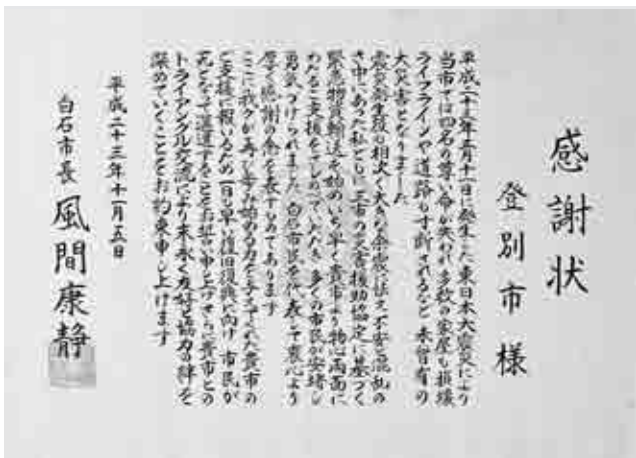 感謝状
登別市 様
平成二十三年三月十一日に発生した東日本大震災により
当市では四名の尊い命が失われ多数の家屋も損壊
ライフラインや道路も寸断されるなど未曾有の
大災害となりました
震災発生後も相次ぐ大きな余震に怯え不安と混乱の
さ中にあった私どもに三市の災害援助協定に基づく
緊急物資輸送を始めいち早く貴市より物心両面に
わたるご支援をさしのべていただき多くの市民が安堵し
勇気づけられました 白石市民を代表して衷心より
厚く感謝の念を表するものであります
ここに我々が再び歩み始める力を与えてくれた貴市の
ご支援に報いるため一日も早い復旧復興に向け市民が
一丸となって邁進することをお誓い申し上げさらに貴市との
トライアングル交流により末永く友好と協力の絆を
深めていくことをお約束申し上げます
平成二十三年十一月五日
白石市長 風間康靜